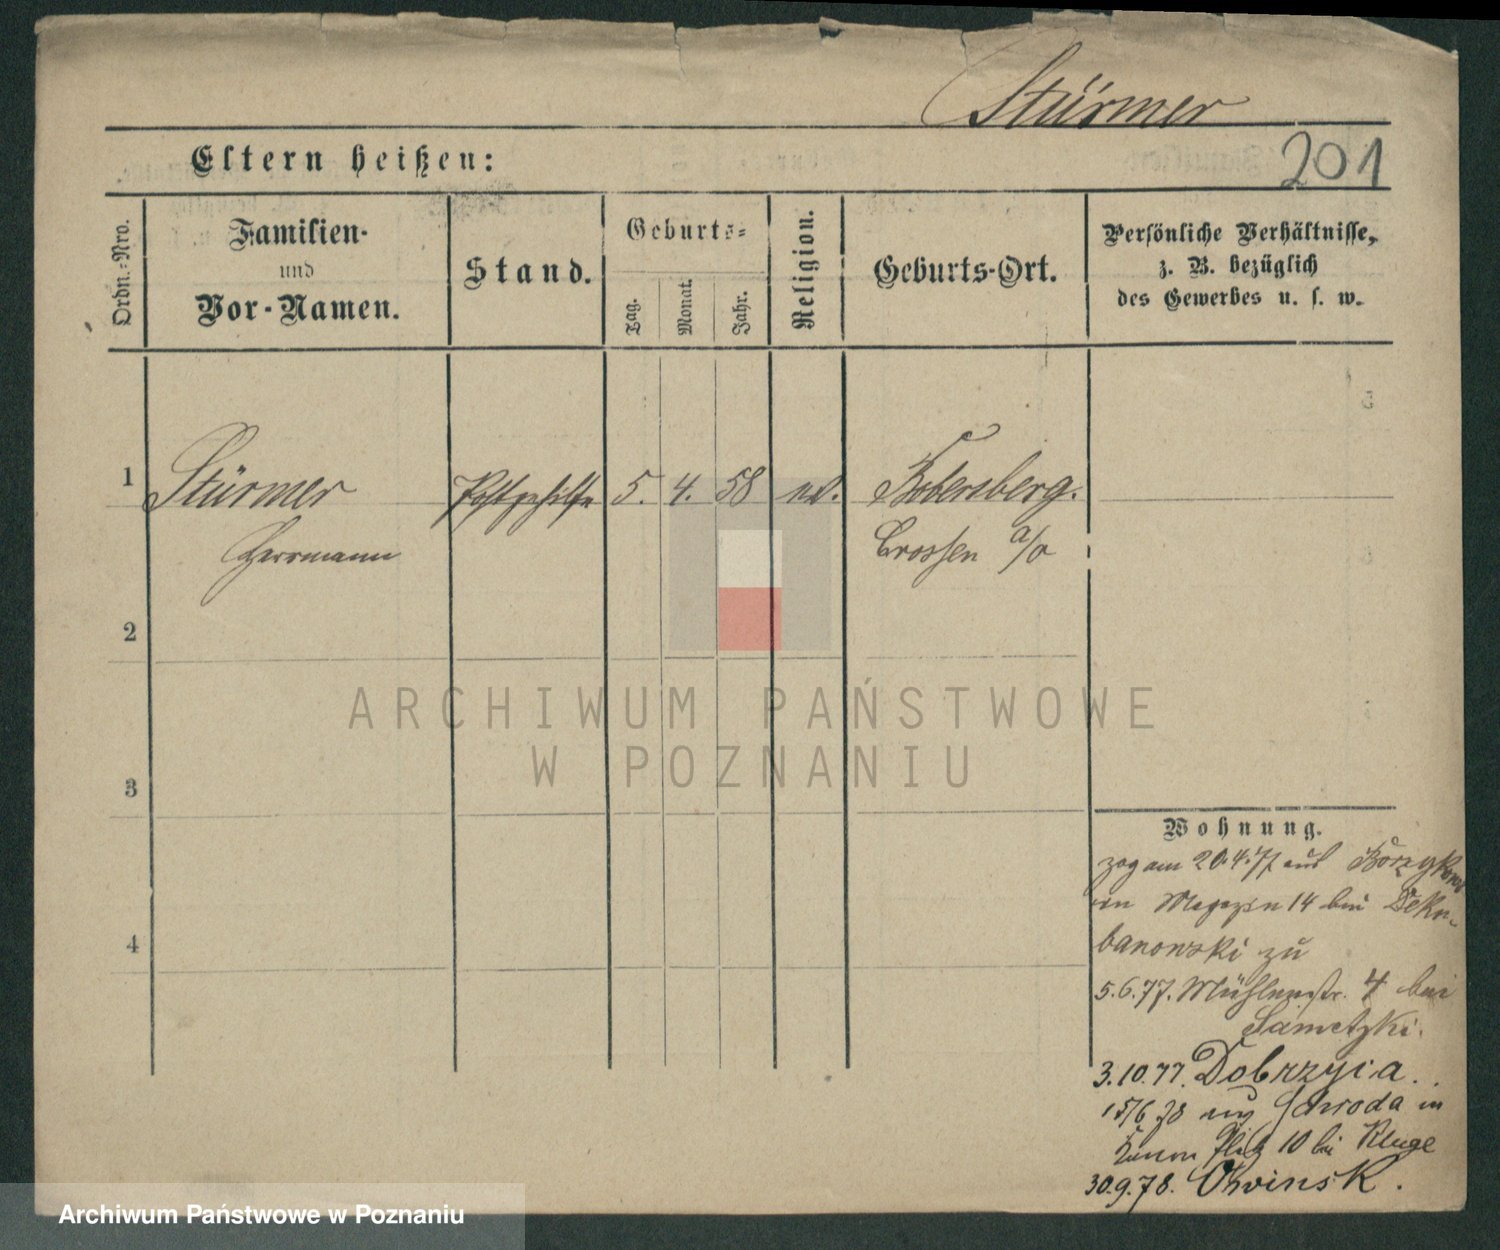 Stürmer
201
Eltern heißen:
Ordn.-Nro.
Familien-
und
Vor-Namen.
Stand.
Geburts-
Tag.
Monat.
Jahr.
Religion.
Geburts-Ort.
Persönliche Verhältnisse,
z. B. bezüglich
des Gewerbes u. s. w.
1
Stürmer Postgehilfe 5. 4. 58 ev. Bobersberg.
Herrmann Crossen a/o
2
3
4
ARCHIWUM PAŃSTWOWE
W POZNANIU
Wohnung.
zog am 20.4.77 aus
in Magazin 14 bei
banowski zu
5.6.77. Mühlenstr. 4 bei
Sametzki.
3.10.77. Dobrzyca.
15/6 78 aus Schroda in
10 bei Kluge
30.9.78.
Archiwum Państwowe w Poznaniu